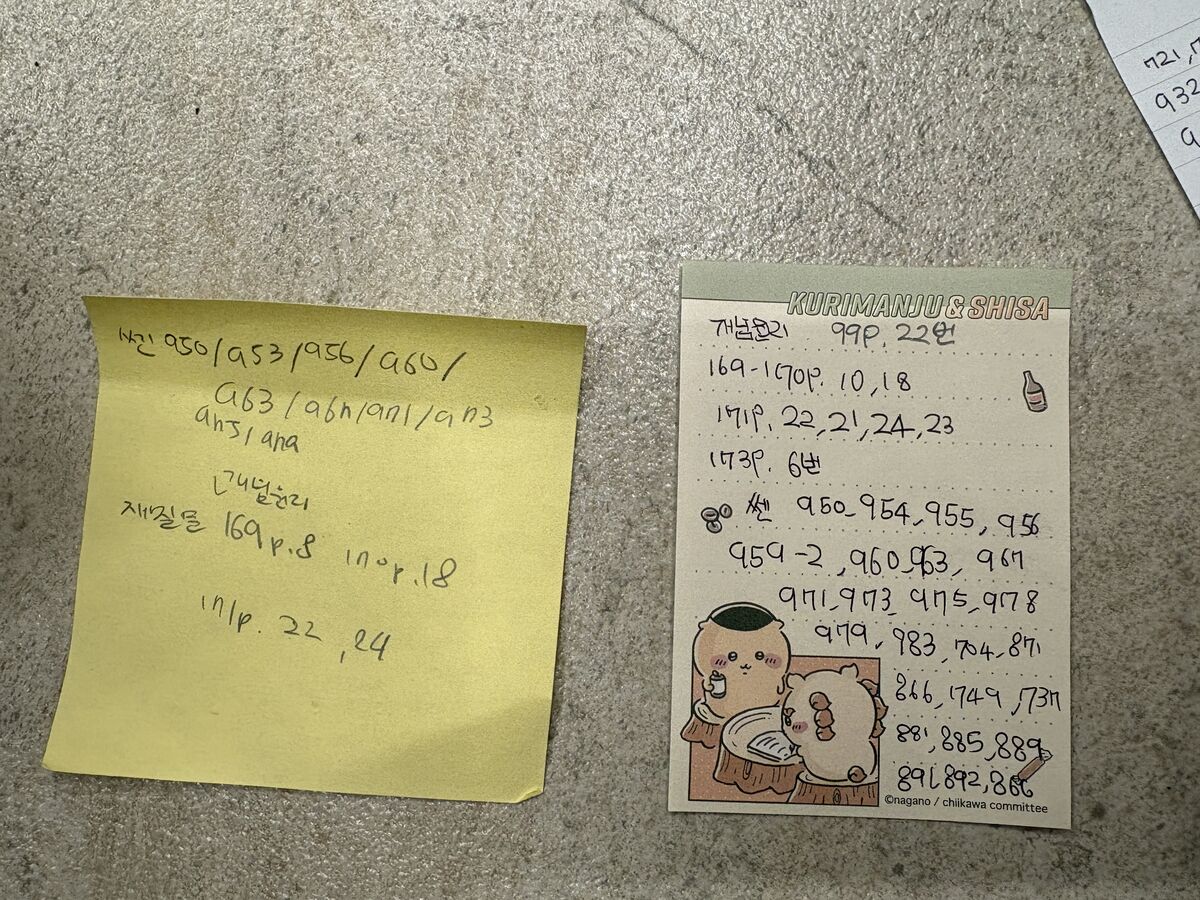 쎈 950/953/956/960/
963/967/971/973
975/979
개념원리
재질문 169p.8 170p.18
171p. 22, 24
KURIMANJU & SHISA
개념원리 99p. 22번
169-170p. 10, 18
171p. 22, 21, 24, 23
173p. 6번
쎈 950, 954, 955, 956
959-2, 960, 963, 967
971, 973, 975, 978
979, 983, 704, 871
866, 749, 737
881, 885, 889
891, 892, 866
©nagano / chiikawa committee
721,
932
9